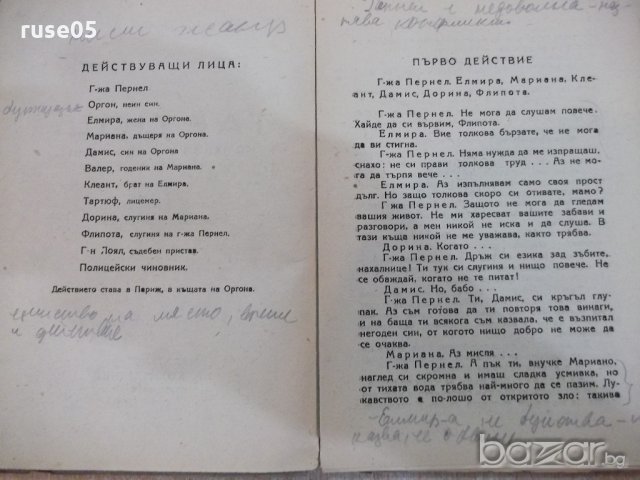 ruse05
ДЕЙСТВУВАЩИ ЛИЦА:
Г-жа Пернел
Оргон, неин син.
Елмира, жена на Оргона.
Мариана, дъщеря на Оргона.
Дамис, син на Оргона
Валер, годеник на Мариана.
Клеант, брат на Елмира.
Тартюф, лицемер.
Дорина, слугиня на Мариана.
Флипота, слугиня на г-жа Пернел.
Г-н Лоял, съдебен пристав.
Полицейски чиновник.
Действието става в Париж, в къщата на Оргона.
единство на място, време
и действие
ПЪРВО ДЕЙСТВИЕ
Г-жа Пернел. Елмира, Мариана, Кле-
ант, Дамис, Дорина, Флипота.
Г-жа Пернел. Не мога да слушам повече.
Хайде да си вървим, Флипота.
Елмира. Вие толкова бързате, че не мога
да ви стигна.
Г-жа Пернел. Няма нужда да ме изпращаш,
снахо: не си прави толкова труд . . . Аз не мо-
га да търпя вече . . .
Елмира. Аз изпълнявам само своя прост
дълг. Но защо толкова скоро си отивате, мамо?
Г-жа Пернел. Защото не мога да гледам
вашия живот. Не ми харесват вашите забави и
разговори, а мен никой не иска и да слуша. В
тази къща никой не ме уважава, както трябва.
Дорина. Когато . . .
Г-жа Пернел. Дръж си езика зад зъбите,
нахалнице! Ти тук си слугиня и нищо повече. Не
се обаждай, когато не те питат!
Дамис. Но, бабо . . .
Г-жа Пернел. Ти, Дамис, си кръгъл глу-
пак. Аз съм готова да ти повторя това винаги,
и на баща ти всякога съм казвала, че е възпитал
негоден син, от когото нищо добро не може да
се очаква.
Мариана. Аз мисля . . .
Г-жа Пернел. А пък ти, внучке Мариано,
наглед си скромна и имаш сладка усмивка, но
от тихата вода трябва най-много да се пазим. Лу-
кавството а по-лошо от откритото зло: такива
bazar.bg